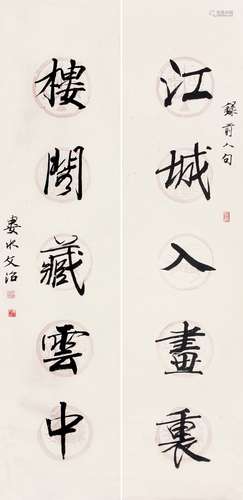 錄前人句
江城入畫裏
樓閣藏雲中
婁水文治